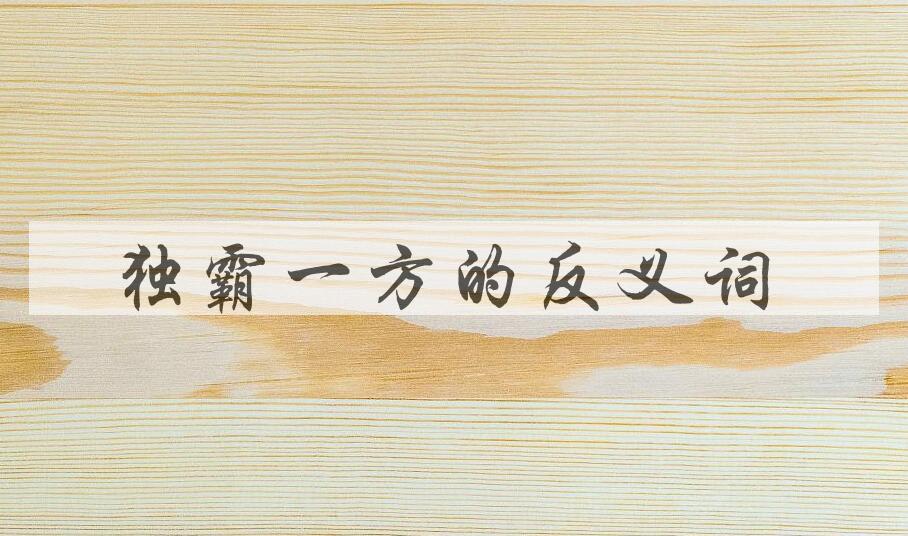 独霸一方的反义词